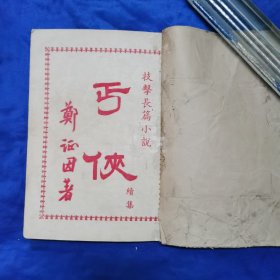 技擊長篇小說
丐俠
續集
鄭証因著